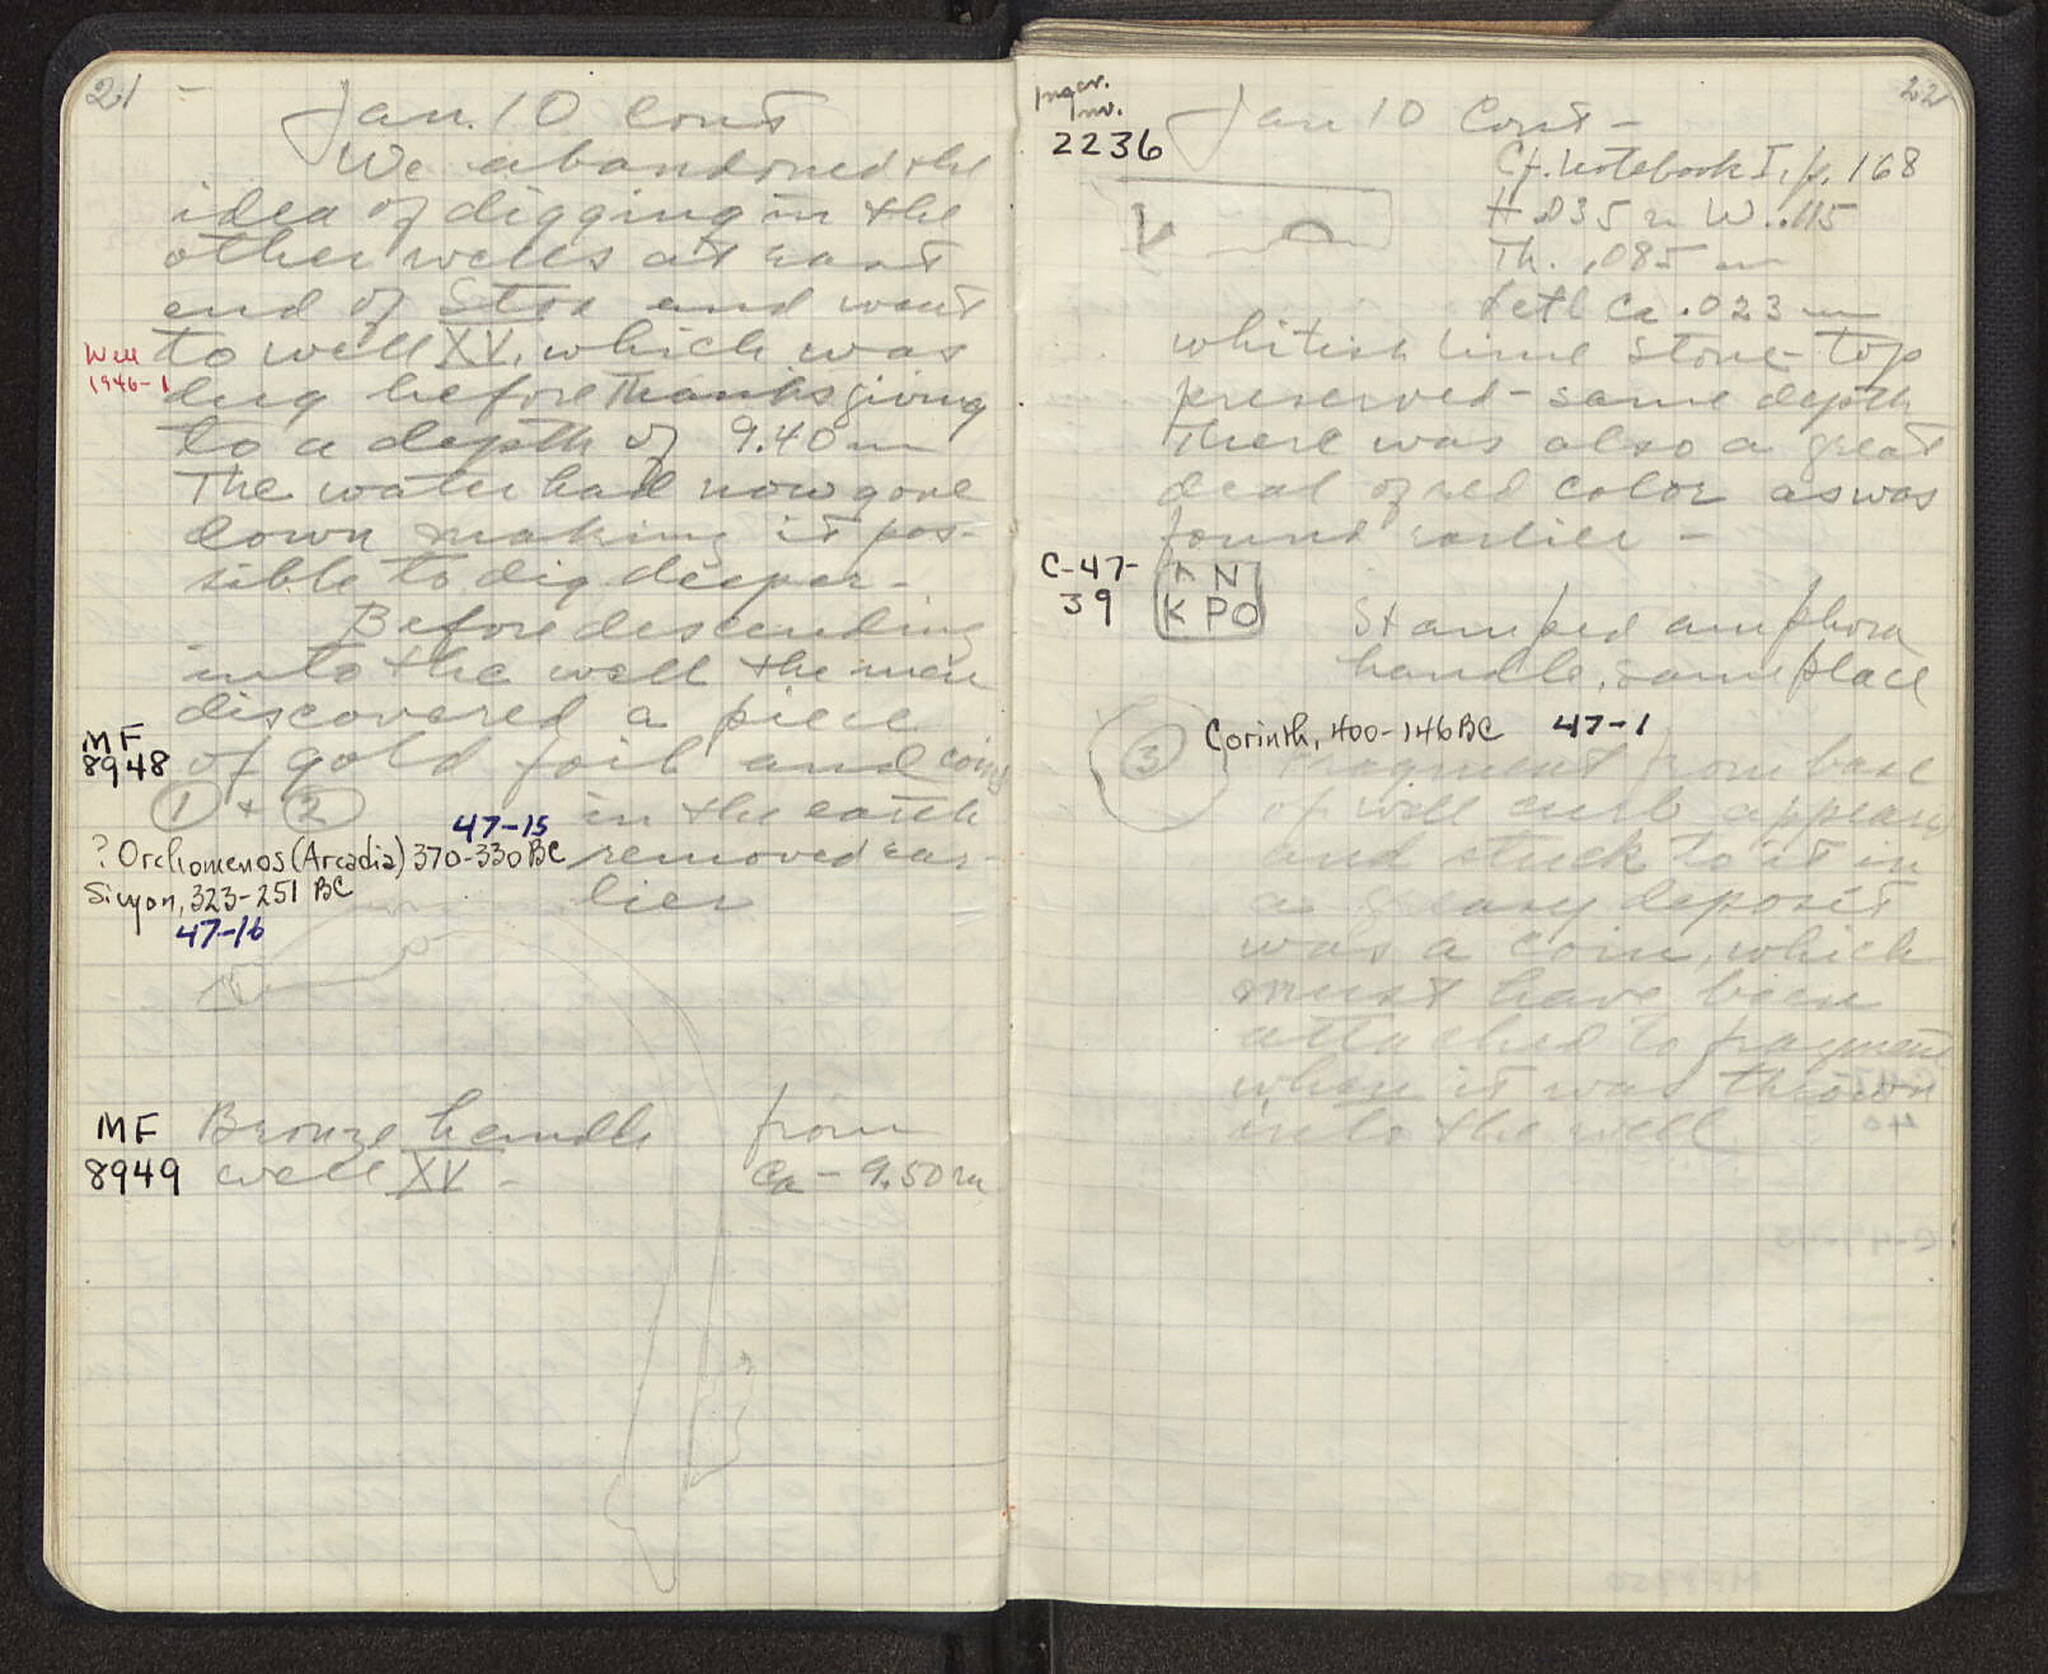 21
Jan. 10 Cont
We abandoned the
idea of digging in the
other wells at east
end of Stoa and went
Well
1946-1
to well XV, which was
dug before Thanksgiving
to a depth of 9.40 m
The water had now gone
down making it pos-
sible to dig deeper -
Before descending
into the well the men
discovered a piece
MF
8948
of gold foil and coins
1 + 2 in the earth
47-15
? Orchomenos (Arcadia) 370-330 BC removed ear-
Sicyon, 323-251 BC lier
47-16
MF
8949
Bronze handle from
well XV - Ca - 9.50 m
22
Inscr.
Inv.
2236
Jan 10 Cont -
Cf. Notebook I, p. 168
H .035 m W. .115
Th. .085 m
Ca .023 m
whitish lime stone - top
preserved - same depth
There was also a great
deal of red color as was
found earlier -
C-47-
39
Λ Ν
Κ Ρ Ο
Stamped amphora
handle, same place
3
Corinth, 400-146 BC 47-1
Fragment from base
of well curb appeared
and stuck to it in
a greasy deposit
was a coin, which
must have been
attached to fragment
when it was thrown
into the well